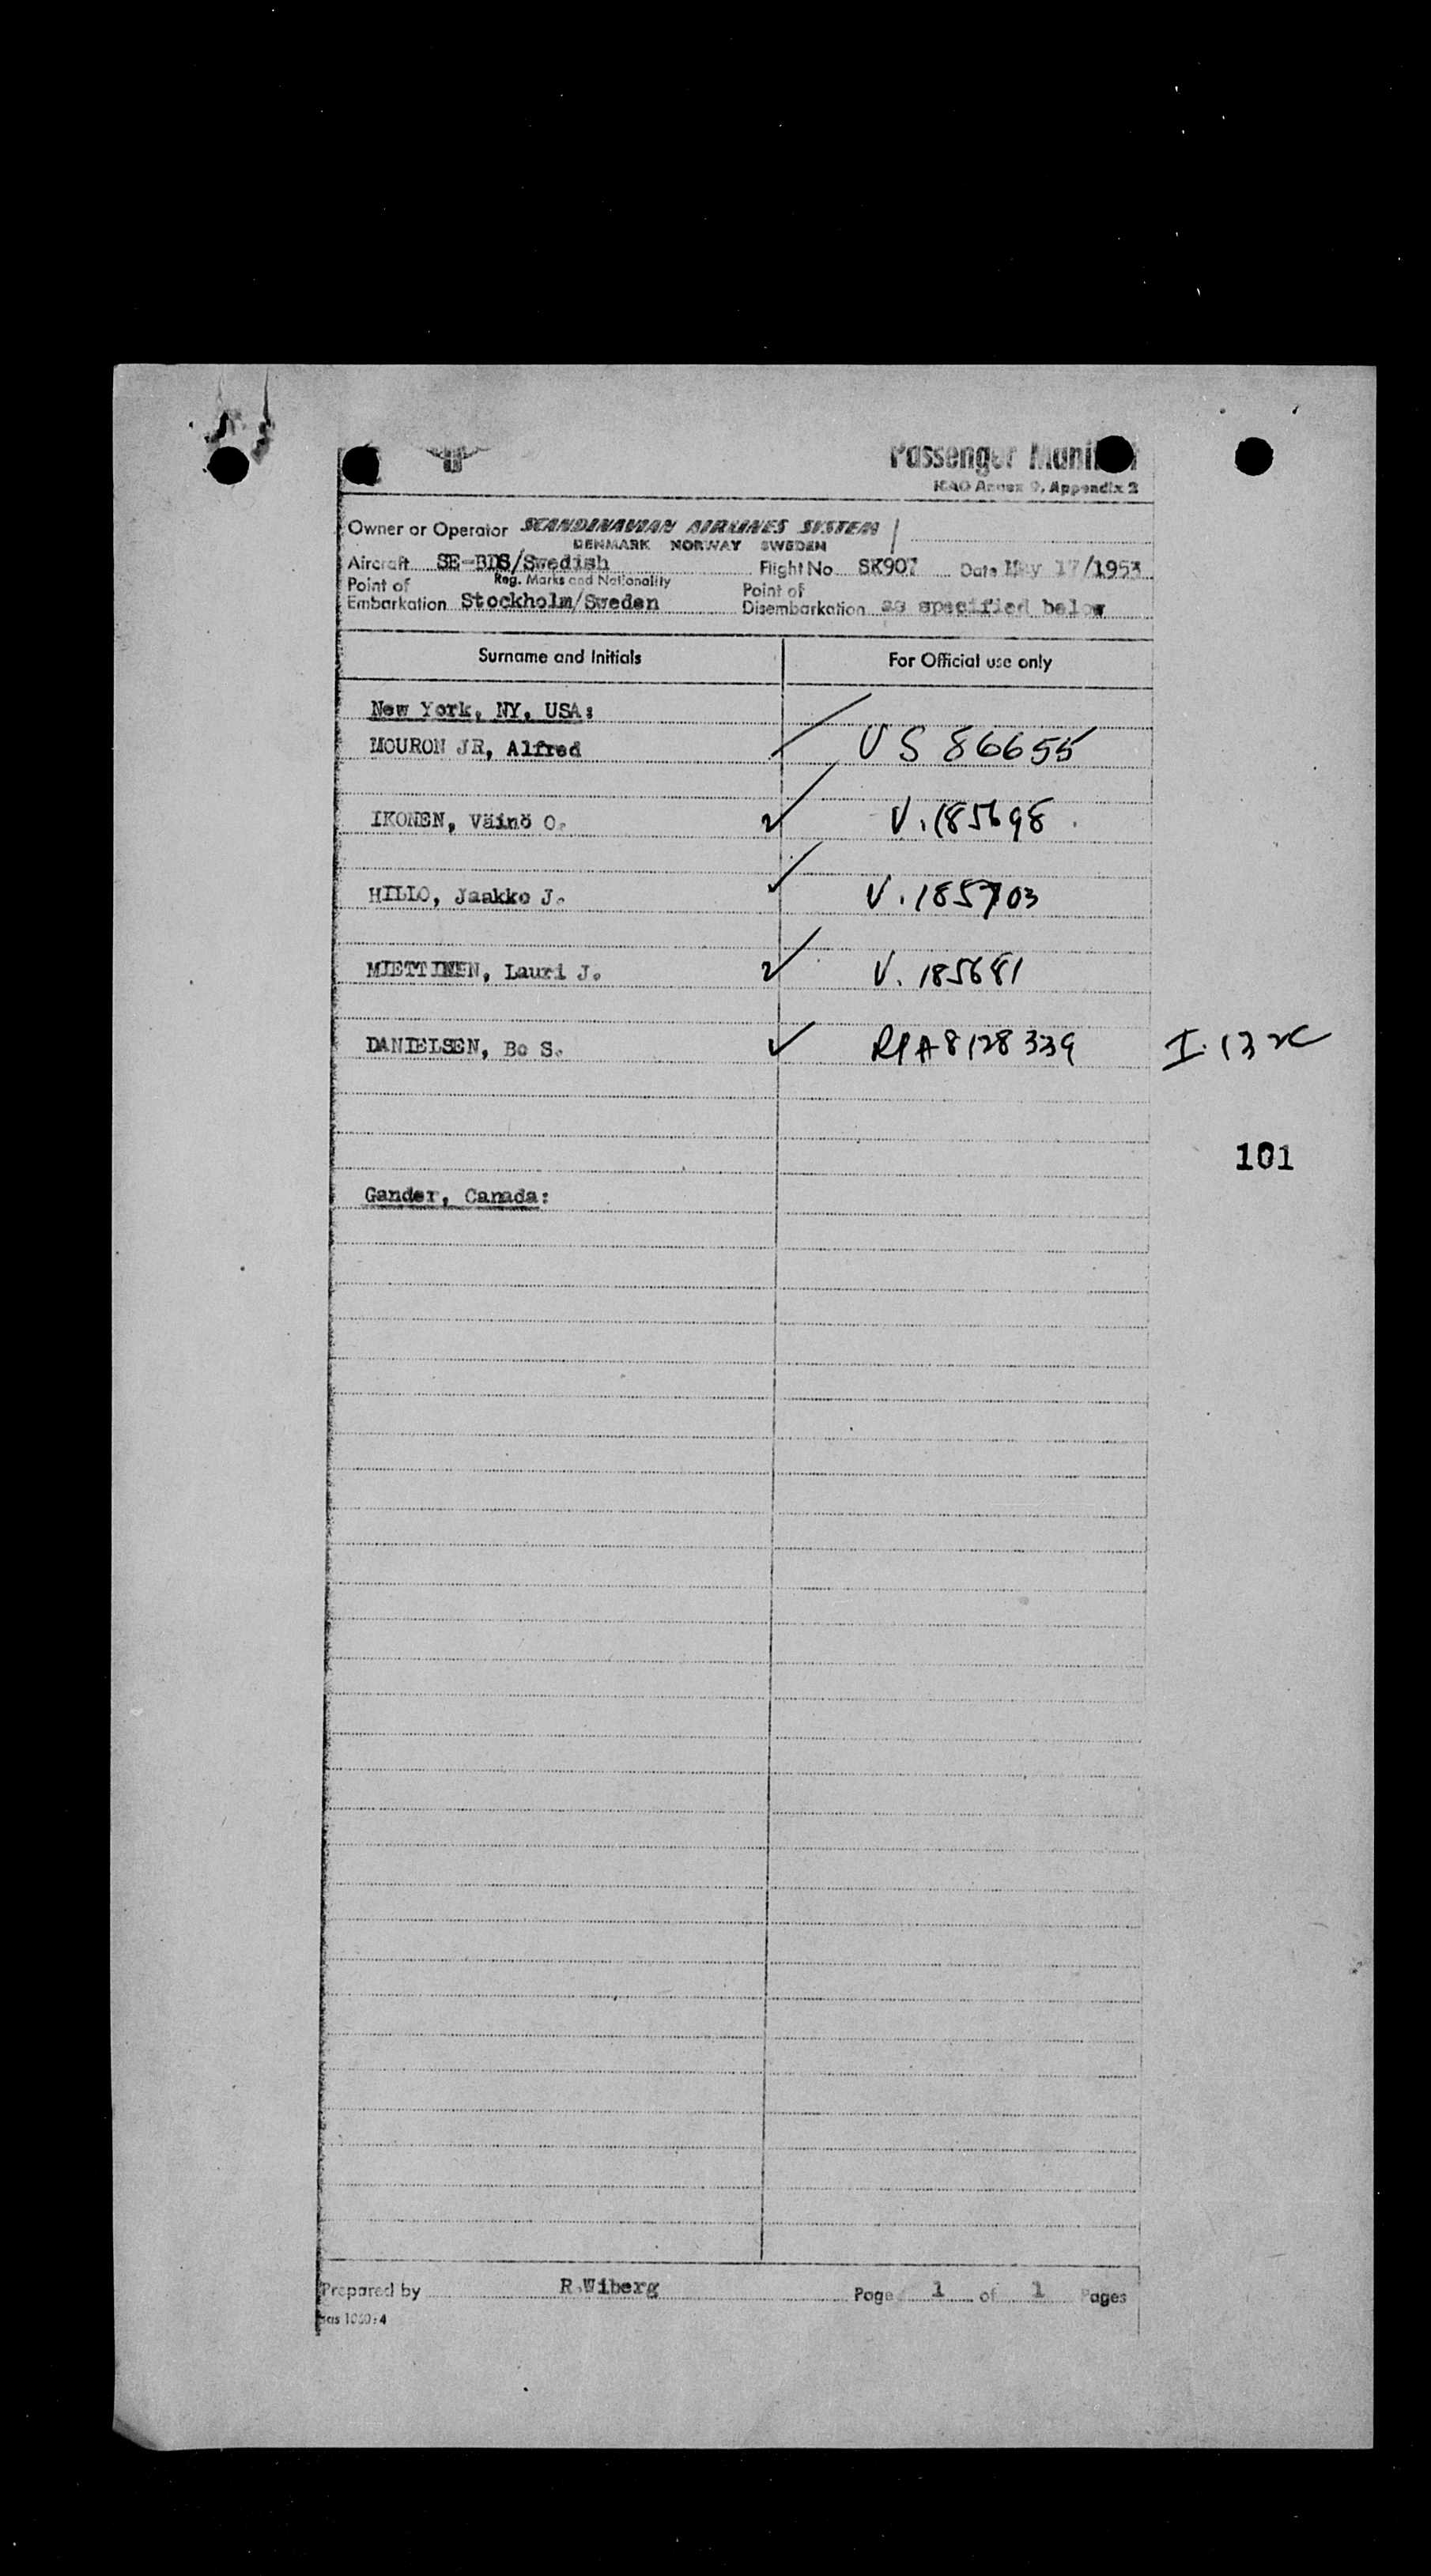 Passenger Mani
ICAO Annex 9, Appendix 2
Owner or Operator SCANDINAVIAN AIRLINES SYSTEM
DENMARK NORWAY SWEDEN
Aircraft SE-BDS/Swedish Flight No SK907 Date May 17/1953
Reg. Marks and Nationality
Point of Embarkation Stockholm/Sweden Point of Disembarkation as specified below
Surname and Initials For Official use only
New York, NY, USA:
MOURON JR, Alfred US 86655
IKONEN, Väinö O. V.185698
HILLO, Jaakko J. V.185703
MIETTINEN, Lauri J. V.185681
DANIELSEN, Bo S. A8128339
101
Gander, Canada:
Prepared by R.Wiberg Page 1 of 1 Pages